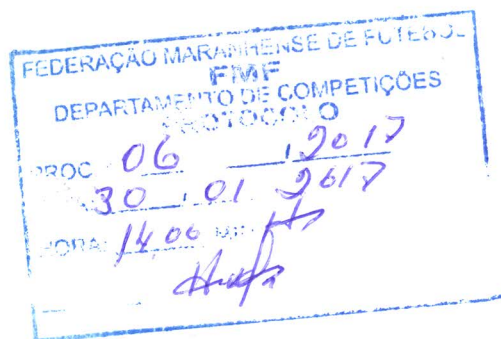 FEDERAÇÃO MARANHENSE DE FUTEBOL
FMF
DEPARTAMENTO DE COMPETIÇÕES
PROTOCOLO
PROC 06 / 2017
30 / 01 2017
HORA: 14,00 MIN